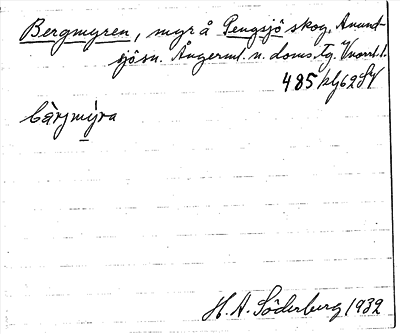 Bergmyren, myr å Pengsjö skog, Anund-
sjösn. Ångerml. n. doms. tg. Vnorrl. l.
485
bàrjmýra
H. A. Söderberg 1932